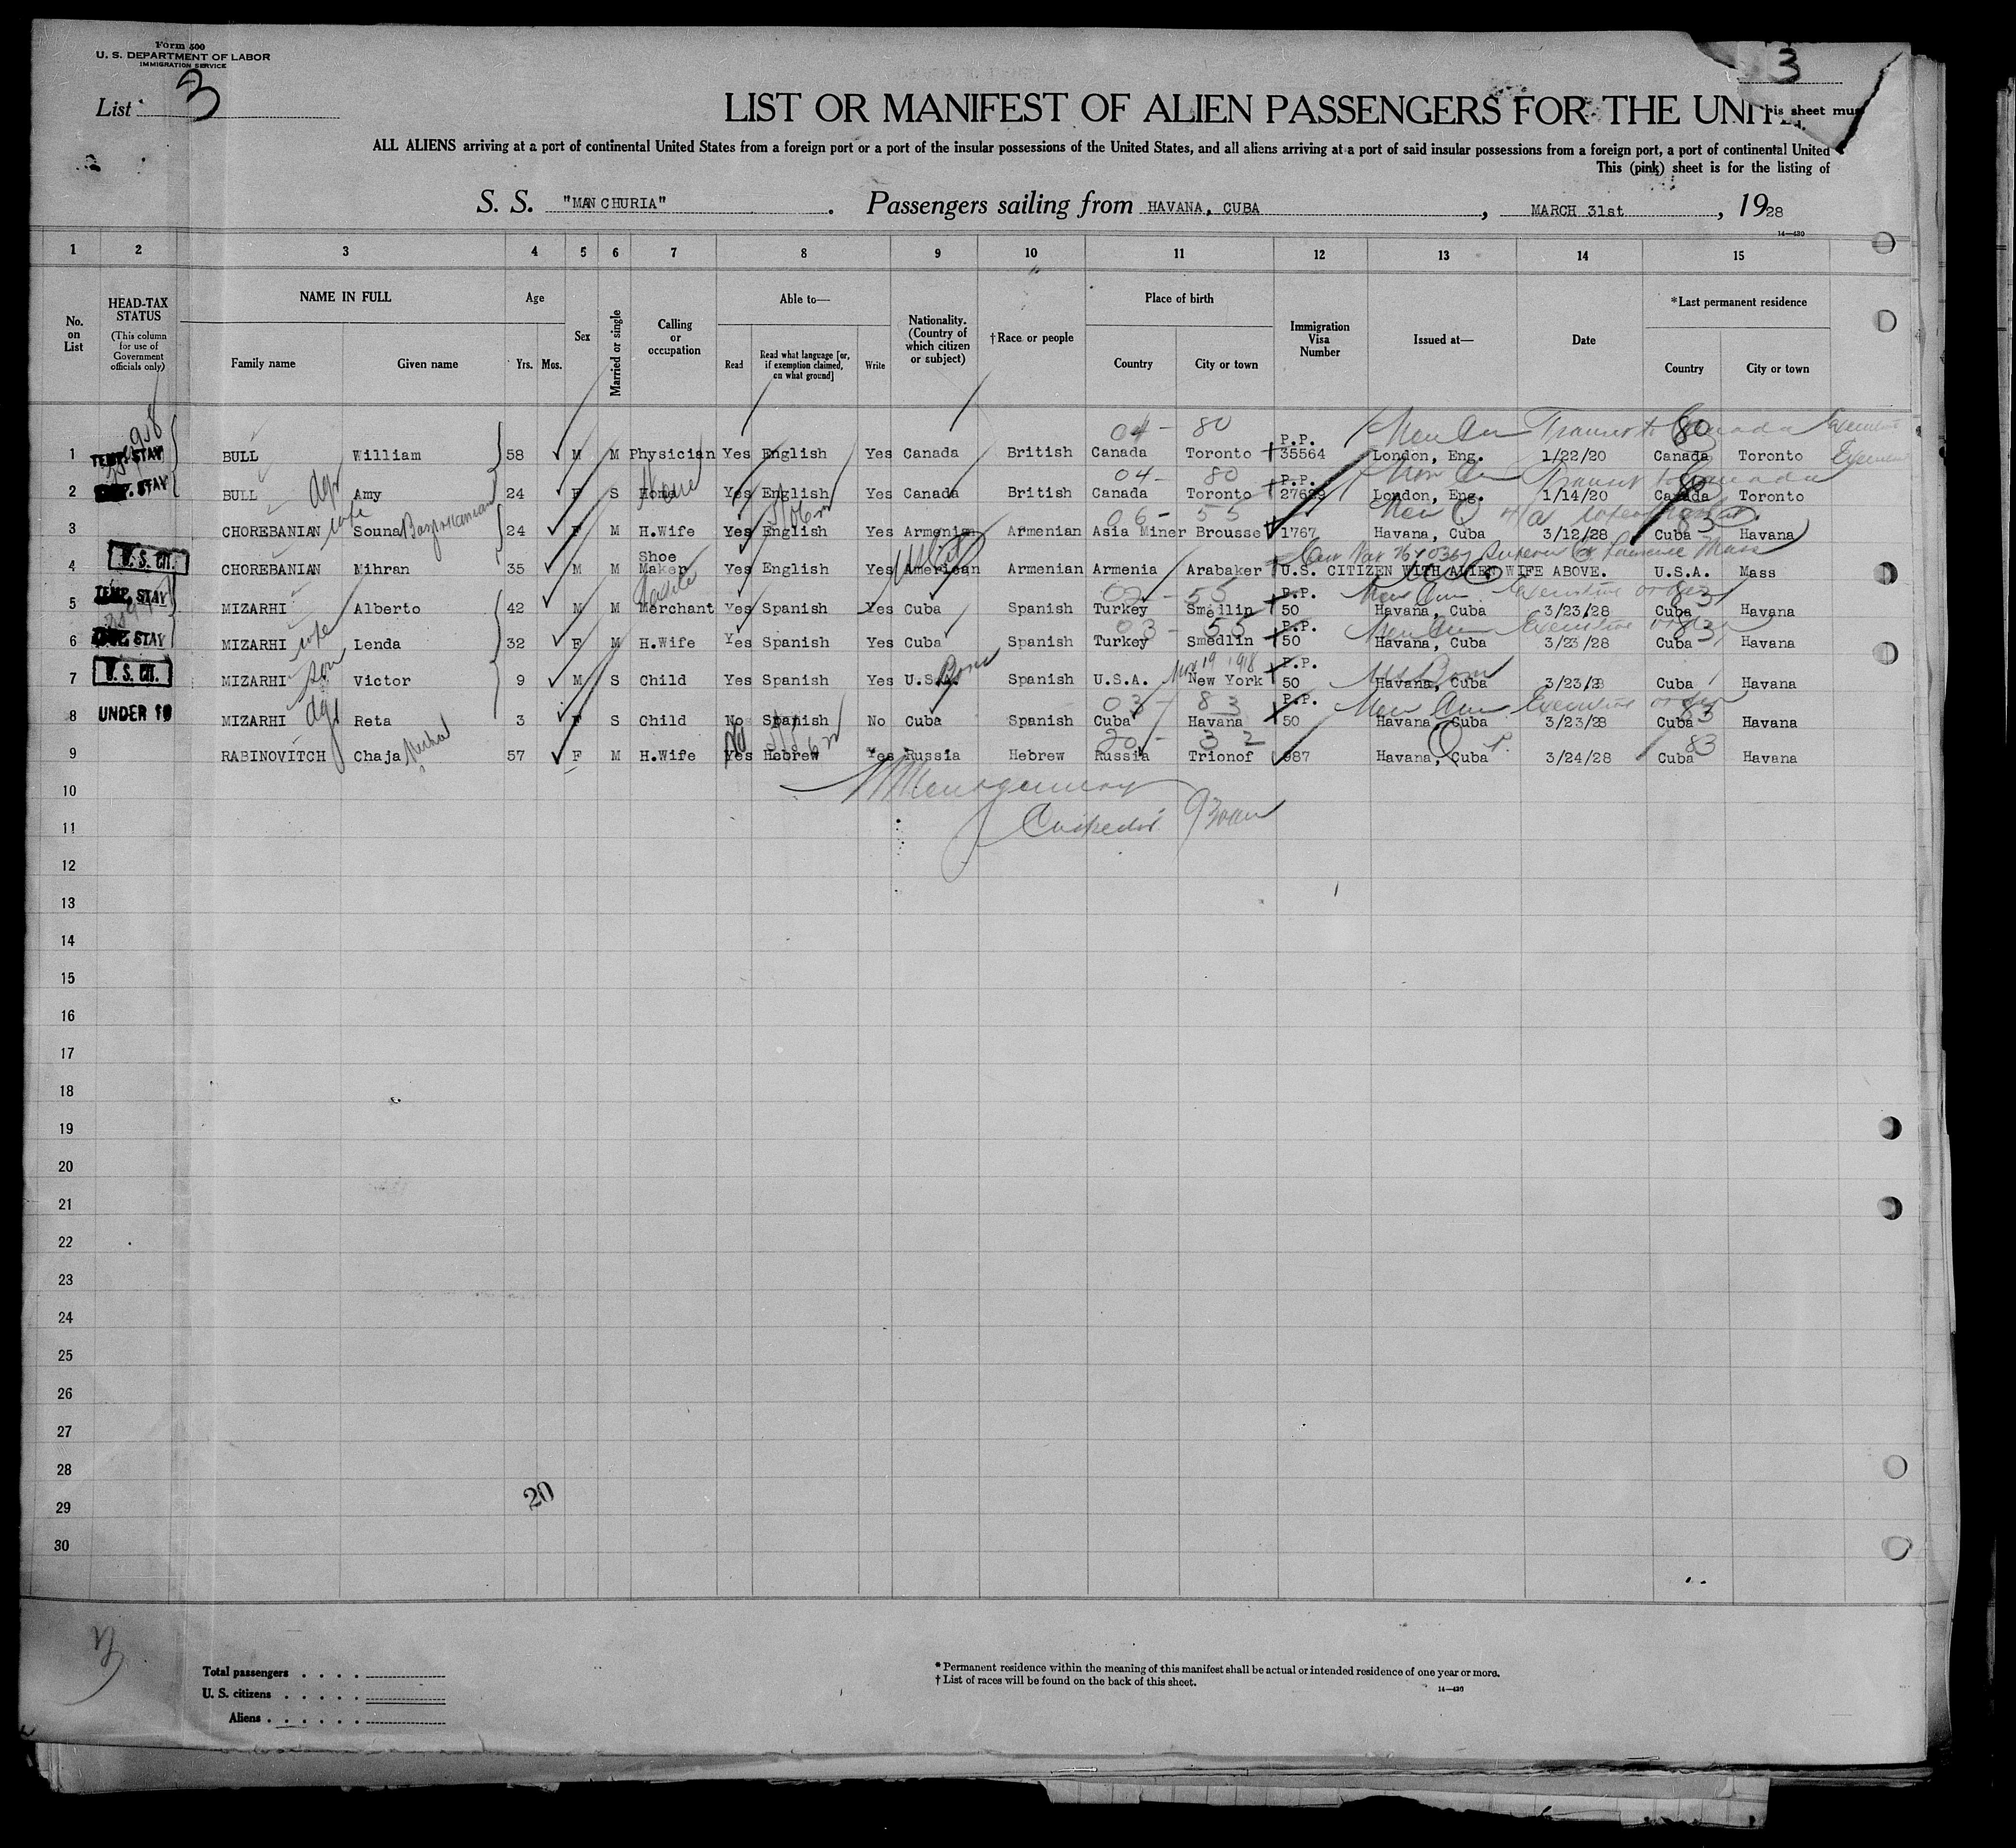 Form 500
U. S. DEPARTMENT OF LABOR
IMMIGRATION SERVICE
3
List 3
LIST OR MANIFEST OF ALIEN PASSENGERS FOR THE UNI
his sheet mus
ALL ALIENS arriving at a port of continental United States from a foreign port or a port of the insular possessions of the United States, and all aliens arriving at a port of said insular possessions from a foreign port, a port of continental United
This (pink) sheet is for the listing of
S. S. "MANCHURIA". Passengers sailing from HAVANA, CUBA, MARCH 31st, 1928
14—430
1 2 3 4 5 6 7 8 9 10 11 12 13 14 15
No. on List
HEAD-TAX STATUS (This column for use of Government officials only)
NAME IN FULL
Family name Given name
Age
Yrs. Mos.
Sex
Married or single
Calling or occupation
Able to—
Read
Read what language [or, if exemption claimed, on what ground]
Write
Nationality. (Country of which citizen or subject)
†Race or people
Place of birth
Country City or town
Immigration Visa Number
Issued at—
Date
*Last permanent residence
Country City or town
04 - 80 Transit to Canada 80
1 TEMP. STAY BULL William 58 M M Physician Yes English Yes Canada British Canada Toronto P.P. 35564 London, Eng. 1/22/20 Canada Toronto
04 - 80 Transit to Canada 80
2 STAY BULL dgr Amy 24 F S Home None Yes English Yes Canada British Canada Toronto P.P. London, Eng. 1/14/20 Canada Toronto
06 - 55 83
3 CHOREBANIAN wife Souna 24 F M H.Wife Yes English Yes Armenian Armenian Asia Miner Brousse 1767 Havana, Cuba 3/12/28 Cuba Havana
4 U. S. CIT. CHOREBANIAN Mihran 35 M M Shoe Maker Yes English Yes American Armenian Armenia Arabaker U.S. CITIZEN WITH ALIEN WIFE ABOVE. U.S.A. Mass
55 Executive order 83
5 TEMP. STAY MIZARHI Alberto 42 M M Merchant Yes Spanish Yes Cuba Spanish Turkey P.P. 50 Havana, Cuba 3/23/28 Cuba Havana
03 - 55 Executive order 83
6 STAY MIZARHI wife Lenda 32 F M H.Wife Yes Spanish Yes Cuba Spanish Turkey Smedlin P.P. 50 Havana, Cuba 3/23/28 Cuba Havana
Nov 19 1918 US Born
7 U. S. CIT. MIZARHI son Victor 9 M S Child Yes Spanish Yes U.S.A. Born Spanish U.S.A. New York P.P. 50 Havana, Cuba 3/23/28 Cuba Havana
03 - 83 Executive order 83
8 UNDER 16 MIZARHI dgr Reta 3 F S Child No Spanish No Cuba Spanish Cuba Havana P.P. 50 Havana, Cuba 3/23/28 Cuba Havana
20 - 32 83
9 RABINOVITCH Chaja 57 F M H.Wife Yes Hebrew Yes Russia Hebrew Russia Trionof 987 Havana, Cuba 3/24/28 Cuba Havana
10
11
12
13
14
15
16
17
18
19
20
21
22
23
24
25
26
27
28
29 20
30
Total passengers . . . .
U. S. citizens . . . . .
Aliens . . . . . .
* Permanent residence within the meaning of this manifest shall be actual or intended residence of one year or more.
† List of races will be found on the back of this sheet.
14—430